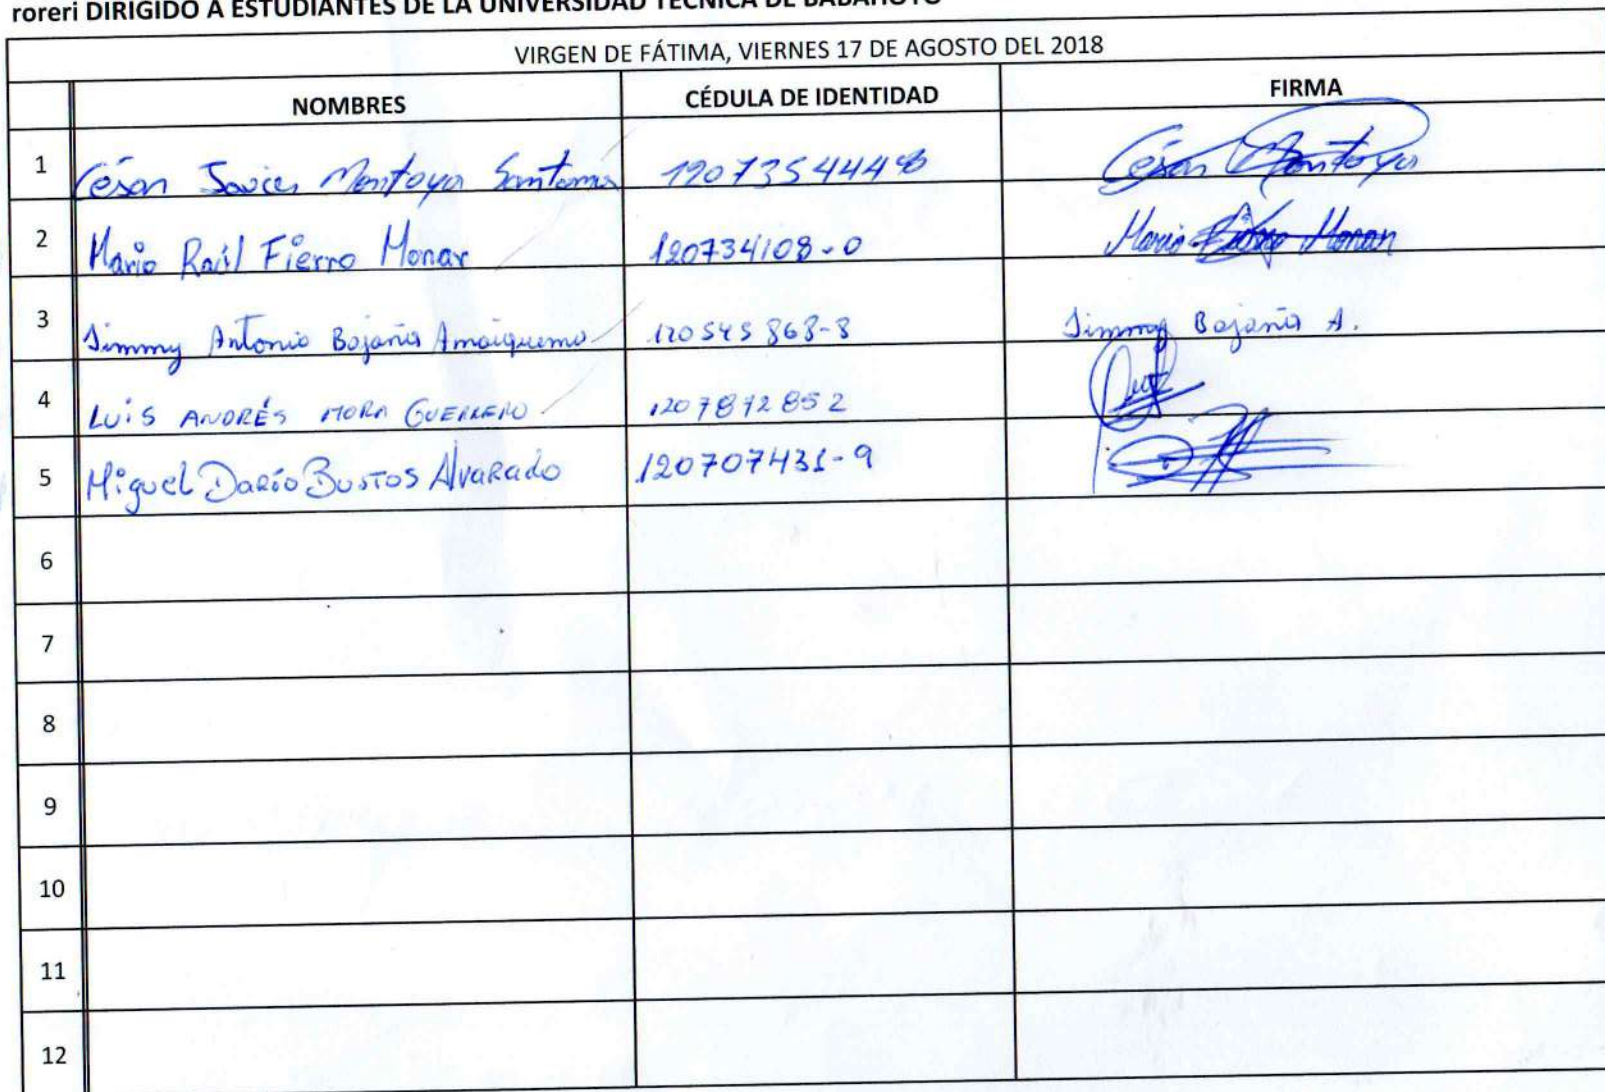 roreri DIRIGIDO A ESTUDIANTES DE LA UNIVERSIDAD TÉCNICA DE BABAHOYO
VIRGEN DE FÁTIMA, VIERNES 17 DE AGOSTO DEL 2018
NOMBRES CÉDULA DE IDENTIDAD FIRMA
1 César Javier Montoya 120735444 César Montoya
2 Mario Raúl Fierro Monar 120734108-0 Mario Fierro Monar
3 Jimmy Antonio Bajaña Amaiquema 120545868-8 Jimmy Bajaña A.
4 LUIS ANDRÉS MORA GUERRERO 1207872852
5 Miguel Darío Bustos Alvarado 120707431-9
6
7
8
9
10
11
12